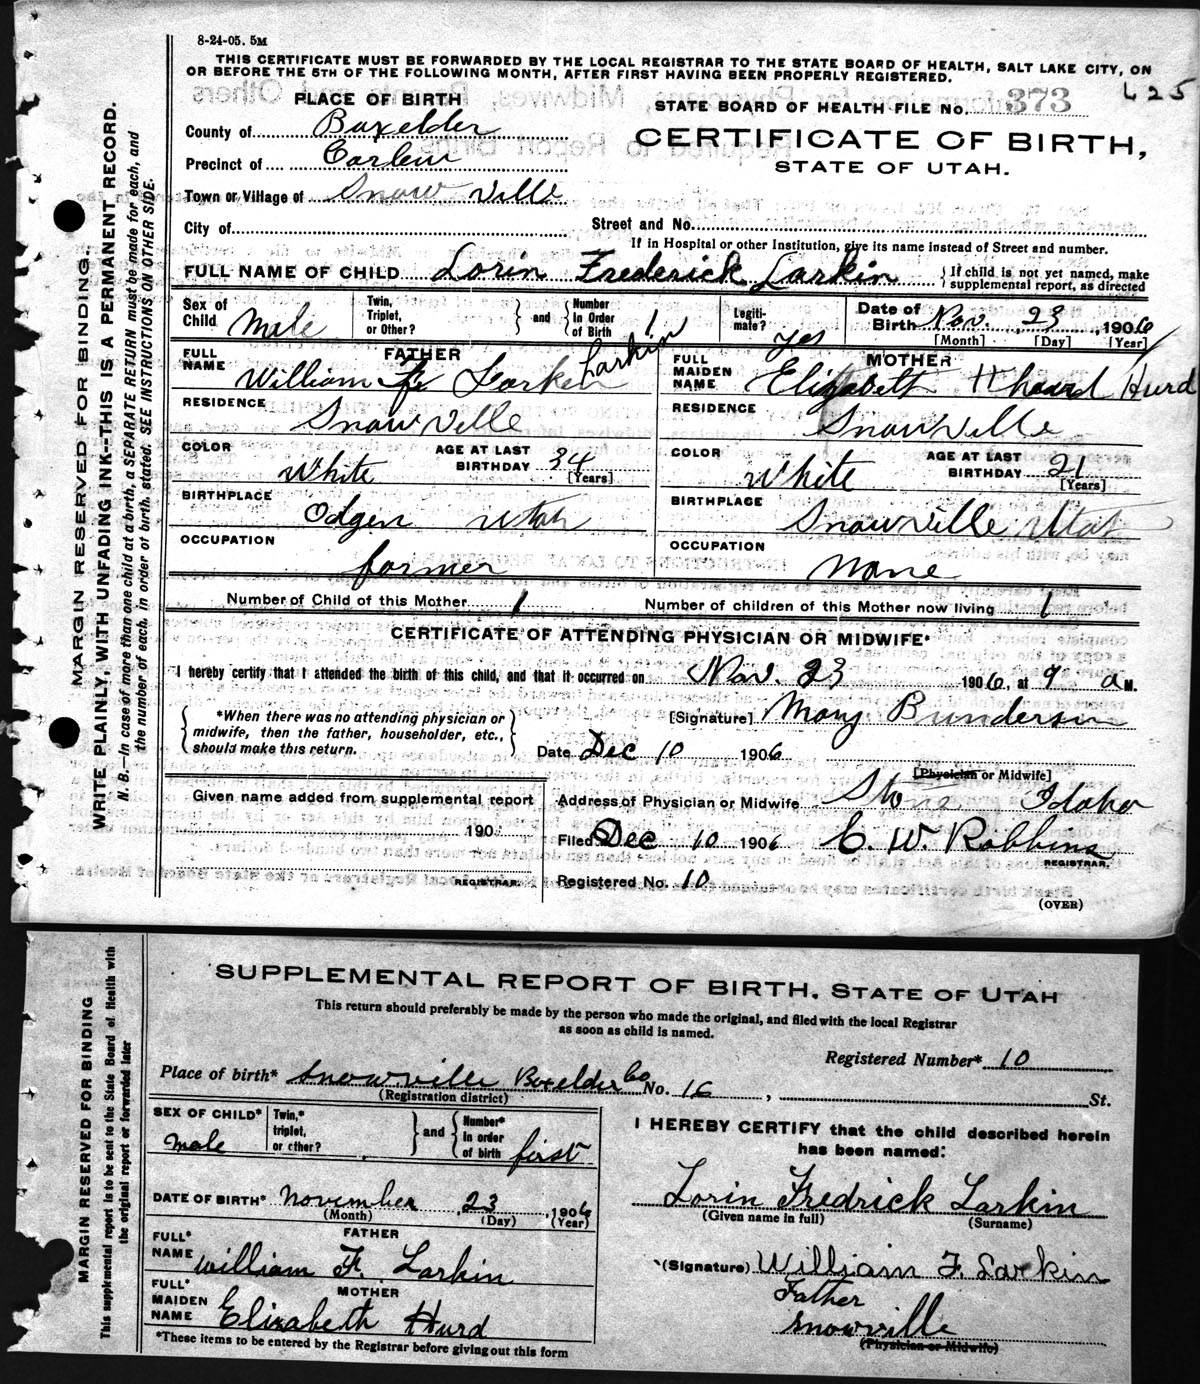 8-24-05. 5M
THIS CERTIFICATE MUST BE FORWARDED BY THE LOCAL REGISTRAR TO THE STATE BOARD OF HEALTH, SALT LAKE CITY, ON
OR BEFORE THE 5TH OF THE FOLLOWING MONTH, AFTER FIRST HAVING BEEN PROPERLY REGISTERED.
625
PLACE OF BIRTH
STATE BOARD OF HEALTH FILE No. 373
County of Boxelder
CERTIFICATE OF BIRTH,
Precinct of
STATE OF UTAH.
Town or Village of Snow ville
City of
Street and No.
If in Hospital or other Institution, give its name instead of Street and number.
FULL NAME OF CHILD Lorin Frederick Larkin
If child is not yet named, make supplemental report, as directed
Sex of Child Male
Twin, Triplet, or Other?
and
Number In Order of Birth 1
Legitimate? Yes
Date of Birth Nov. 23, 1906
[Month] [Day] [Year]
FATHER
FULL NAME William F. Larkin Larkin
MOTHER
FULL MAIDEN NAME Elizabeth Heard Hurd
RESIDENCE Snowville
RESIDENCE Snowville
COLOR White AGE AT LAST BIRTHDAY 34 [Years]
COLOR White AGE AT LAST BIRTHDAY 21 [Years]
BIRTHPLACE Odgen Utah
BIRTHPLACE Snowville Utah
OCCUPATION farmer
OCCUPATION None
Number of Child of this Mother 1
Number of children of this Mother now living 1
CERTIFICATE OF ATTENDING PHYSICIAN OR MIDWIFE*
I hereby certify that I attended the birth of this child, and that it occurred on Nov. 23 1906, at 9 a M.
*When there was no attending physician or midwife, then the father, householder, etc., should make this return.
[Signature] Mary Bunderson
Date Dec 10 1906
[Physician or Midwife]
Given name added from supplemental report
190
REGISTRAR.
Address of Physician or Midwife Stone Idaho
Filed Dec 10 1906 C. W. Robbins
REGISTRAR.
Registered No. 10
(OVER)
MARGIN RESERVED FOR BINDING.
WRITE PLAINLY, WITH UNFADING INK--THIS IS A PERMANENT RECORD.
N. B.—In case of more than one child at a birth, a SEPARATE RETURN must be made for each, and
the number of each, in order of birth, stated. SEE INSTRUCTIONS ON OTHER SIDE.
SUPPLEMENTAL REPORT OF BIRTH, STATE OF UTAH
This return should preferably be made by the person who made the original, and filed with the local Registrar
as soon as child is named.
Registered Number* 10
Place of birth* Snowville Boxelder Co No. 16, St.
(Registration district)
SEX OF CHILD* male
Twin,* triplet, or other?
and
Number* in order of birth first
DATE OF BIRTH* November 23, 1906
(Month) (Day) (Year)
FATHER
FULL* NAME William F. Larkin
MOTHER
FULL* MAIDEN NAME Elizabeth Hurd
*These items to be entered by the Registrar before giving out this form
I HEREBY CERTIFY that the child described herein
has been named:
Lorin Fredrick Larkin
(Given name in full) (Surname)
(Signature) William F. Larkin
Father
Snowville
(Physician or Midwife)
MARGIN RESERVED FOR BINDING
This supplemental report is to be sent to the State Board of Health with
the original report or forwarded later